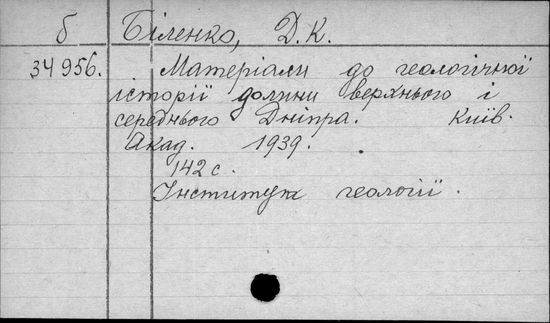 б Біленко, Д.К.
34956. Матеріали до геологічної
історії долини верхнього і
середнього Дніпра. Київ.
Акад. 1939.
142 с.
Інститут геології.